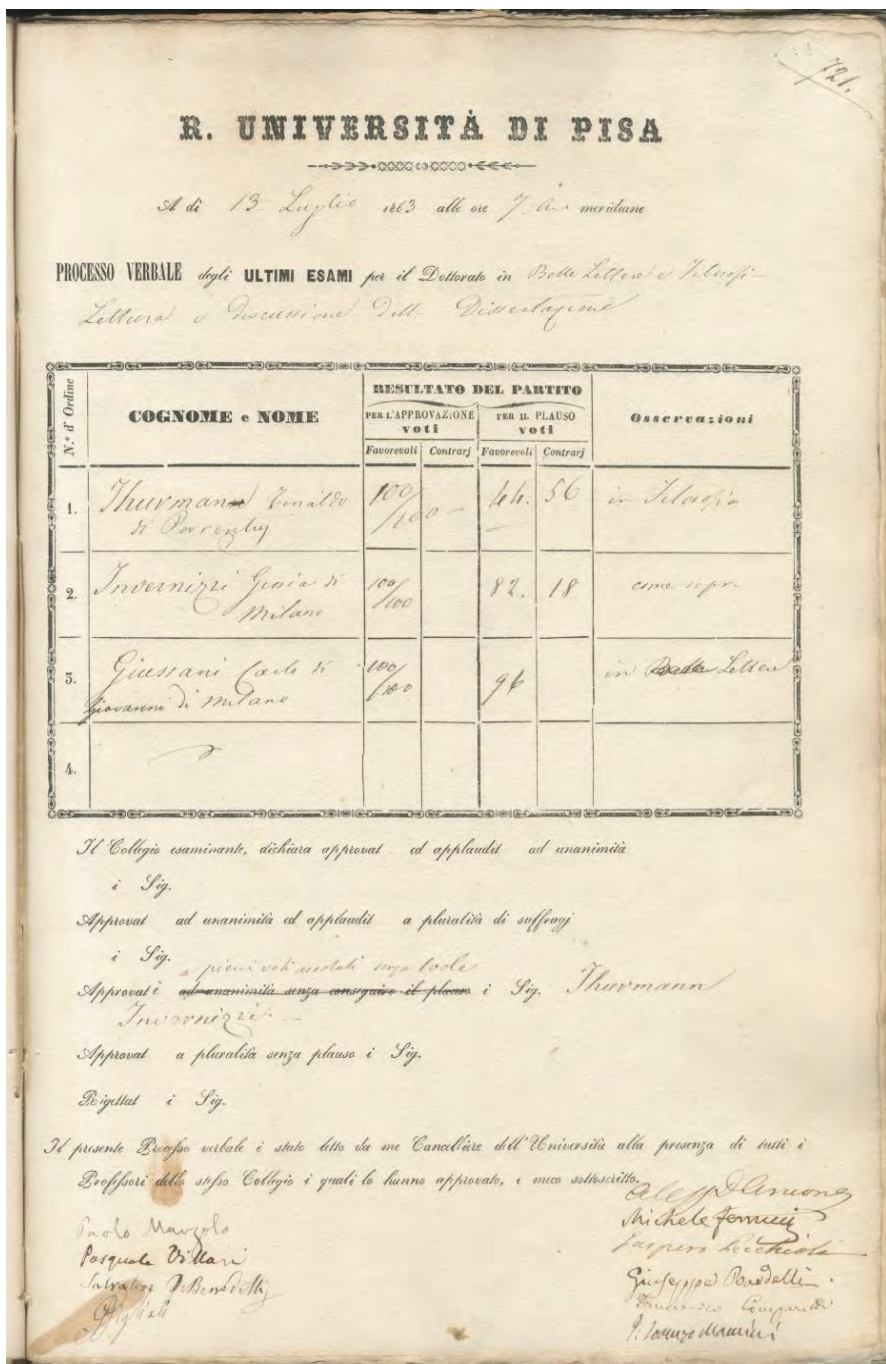 721.
R. UNIVERSITÀ DI PISA
A dì 13 Luglio 1863 alle ore 7 meridiane
PROCESSO VERBALE degli ULTIMI ESAMI per il Dottorato in Belle Lettere e Filosofi
Lettura e discussione dell Dissertazione
N.° d' Ordine
COGNOME e NOME
RESULTATO DEL PARTITO
PER L'APPROVAZIONE voti
PER IL PLAUSO voti
Osservazioni
Favorevoli Contrarj Favorevoli Contrarj
1. Thurmann 100/100 44. 56 in Filosofia
di Porrentruy
2. Invernizzi Giosia di 100/100 82. 18 come sopra
Milano
3. Giussani Carlo di 100/100 96 in Belle Lettere
Giovanni di Milano
4.
Il Collegio esaminante, dichiara approvat ed applaudit ad unanimità
i Sig.
Approvat ad unanimità ed applaudit a pluralità di suffragj
i Sig.
a pieni voti senza lode
Approvati ad unanimità senza conseguire il plauso i Sig. Thurmann
Invernizzi
Approvat a pluralità senza plauso i Sig.
Rigettat i Sig.
Il presente Processo verbale è stato letto da me Cancelliere dell'Università alla presenza di tutti i
Professori dello stesso Collegio i quali lo hanno approvato, e meco sottoscritto.
Paolo Marzolo
Pasquale Villari
Salvatore DeBenedetti
Aless D'Ancona
Michele Ferrucci
Giuseppe Bardelli
Domenico Comparetti